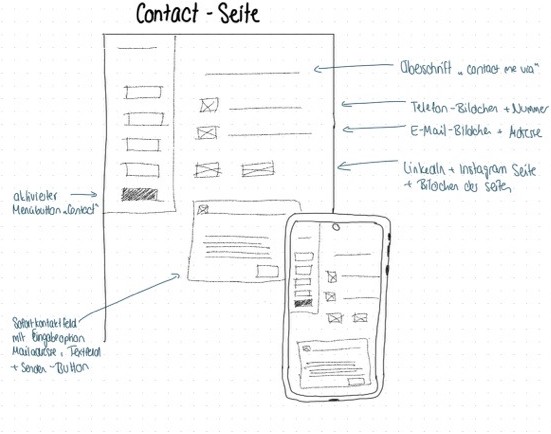 Contact - Seite
Überschrift „contact me via"
Telefon-Bildchen + Nummer
E-Mail-Bildchen + Adresse
LinkedIn + Instagram Seite
+ Bildchen der Seiten
aktivierter
Menübutton „Contact"
Sofortkontaktfeld
mit Eingabeoption
Mailadresse, Textfeld
+ Senden-Button